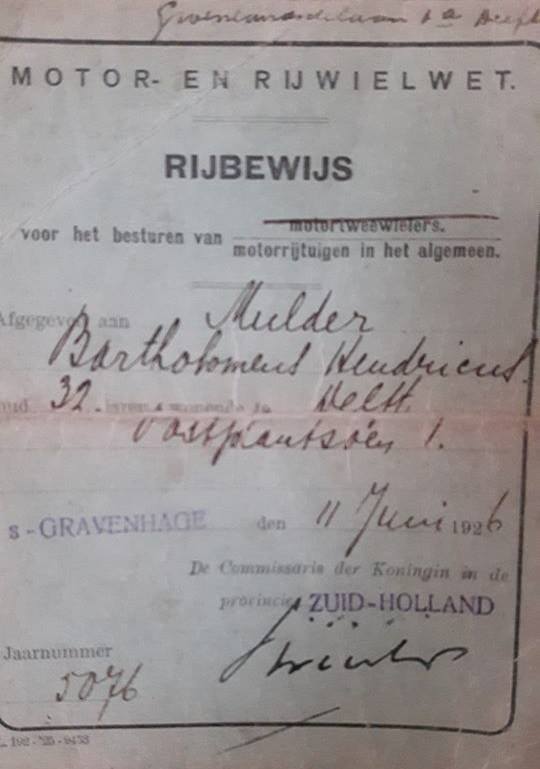 MOTOR- EN RIJWIELWET.
RIJBEWIJS
motortweewielers.
voor het besturen van
motorrijtuigen in het algemeen.
Afgegeven aan Mulder
Bartholomeus Hendricus.
oud 32 jaren, wonende te Delft.
Oostplantsoen 1.
s-GRAVENHAGE den 11 Juni 1926
De Commissaris der Koningin in de
provincie ZUID-HOLLAND
Jaarnummer
5076
192-'25-9453